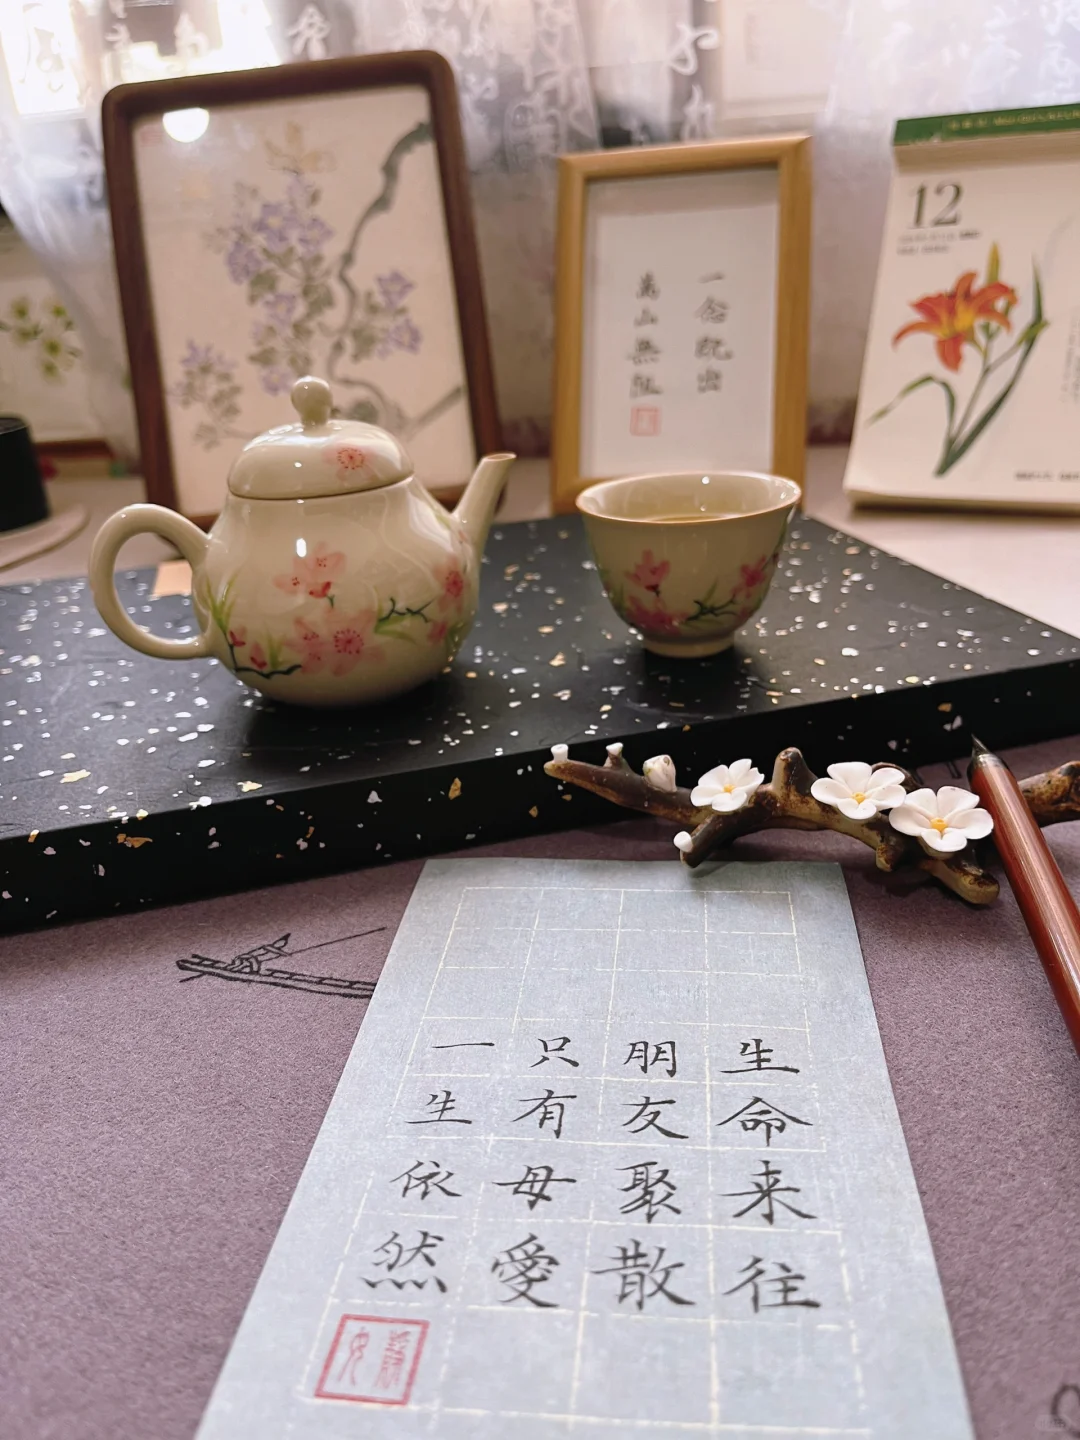 生命来往
朋友聚散
只有母愛
一生依然
一念既出
萬山無阻
12